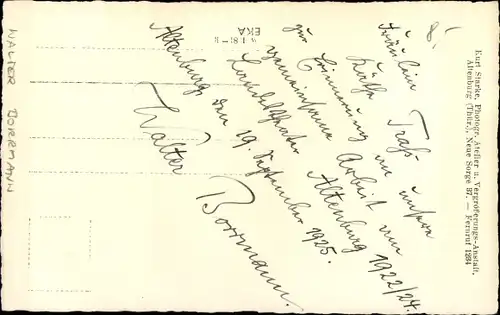 Fräulein
Käthe Traß-
zur Erinnerung an unsere
gemeinsame Arbeit am
Landestheater Altenburg 1922/24.
Altenburg, den 19. September 1925.
Walter Borrmann.
Kurt Starke, Photogr. Atelier u. Vergrößerungs-Anstalt,
Altenburg (Thür.), Neue Sorge 37. — Fernruf 1284
WALTER BORRMANN
EKA